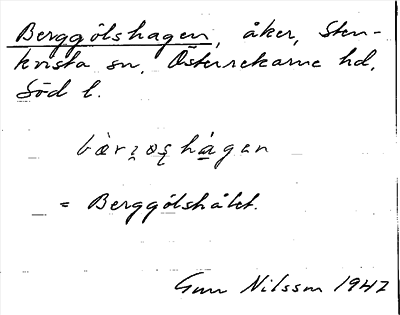 Berggölshagen, åker, Sten-
kvista sn, Österrekarne hd,
Söd l.
hàgen
= Berggölshålet.
Gun Nilsson 1947